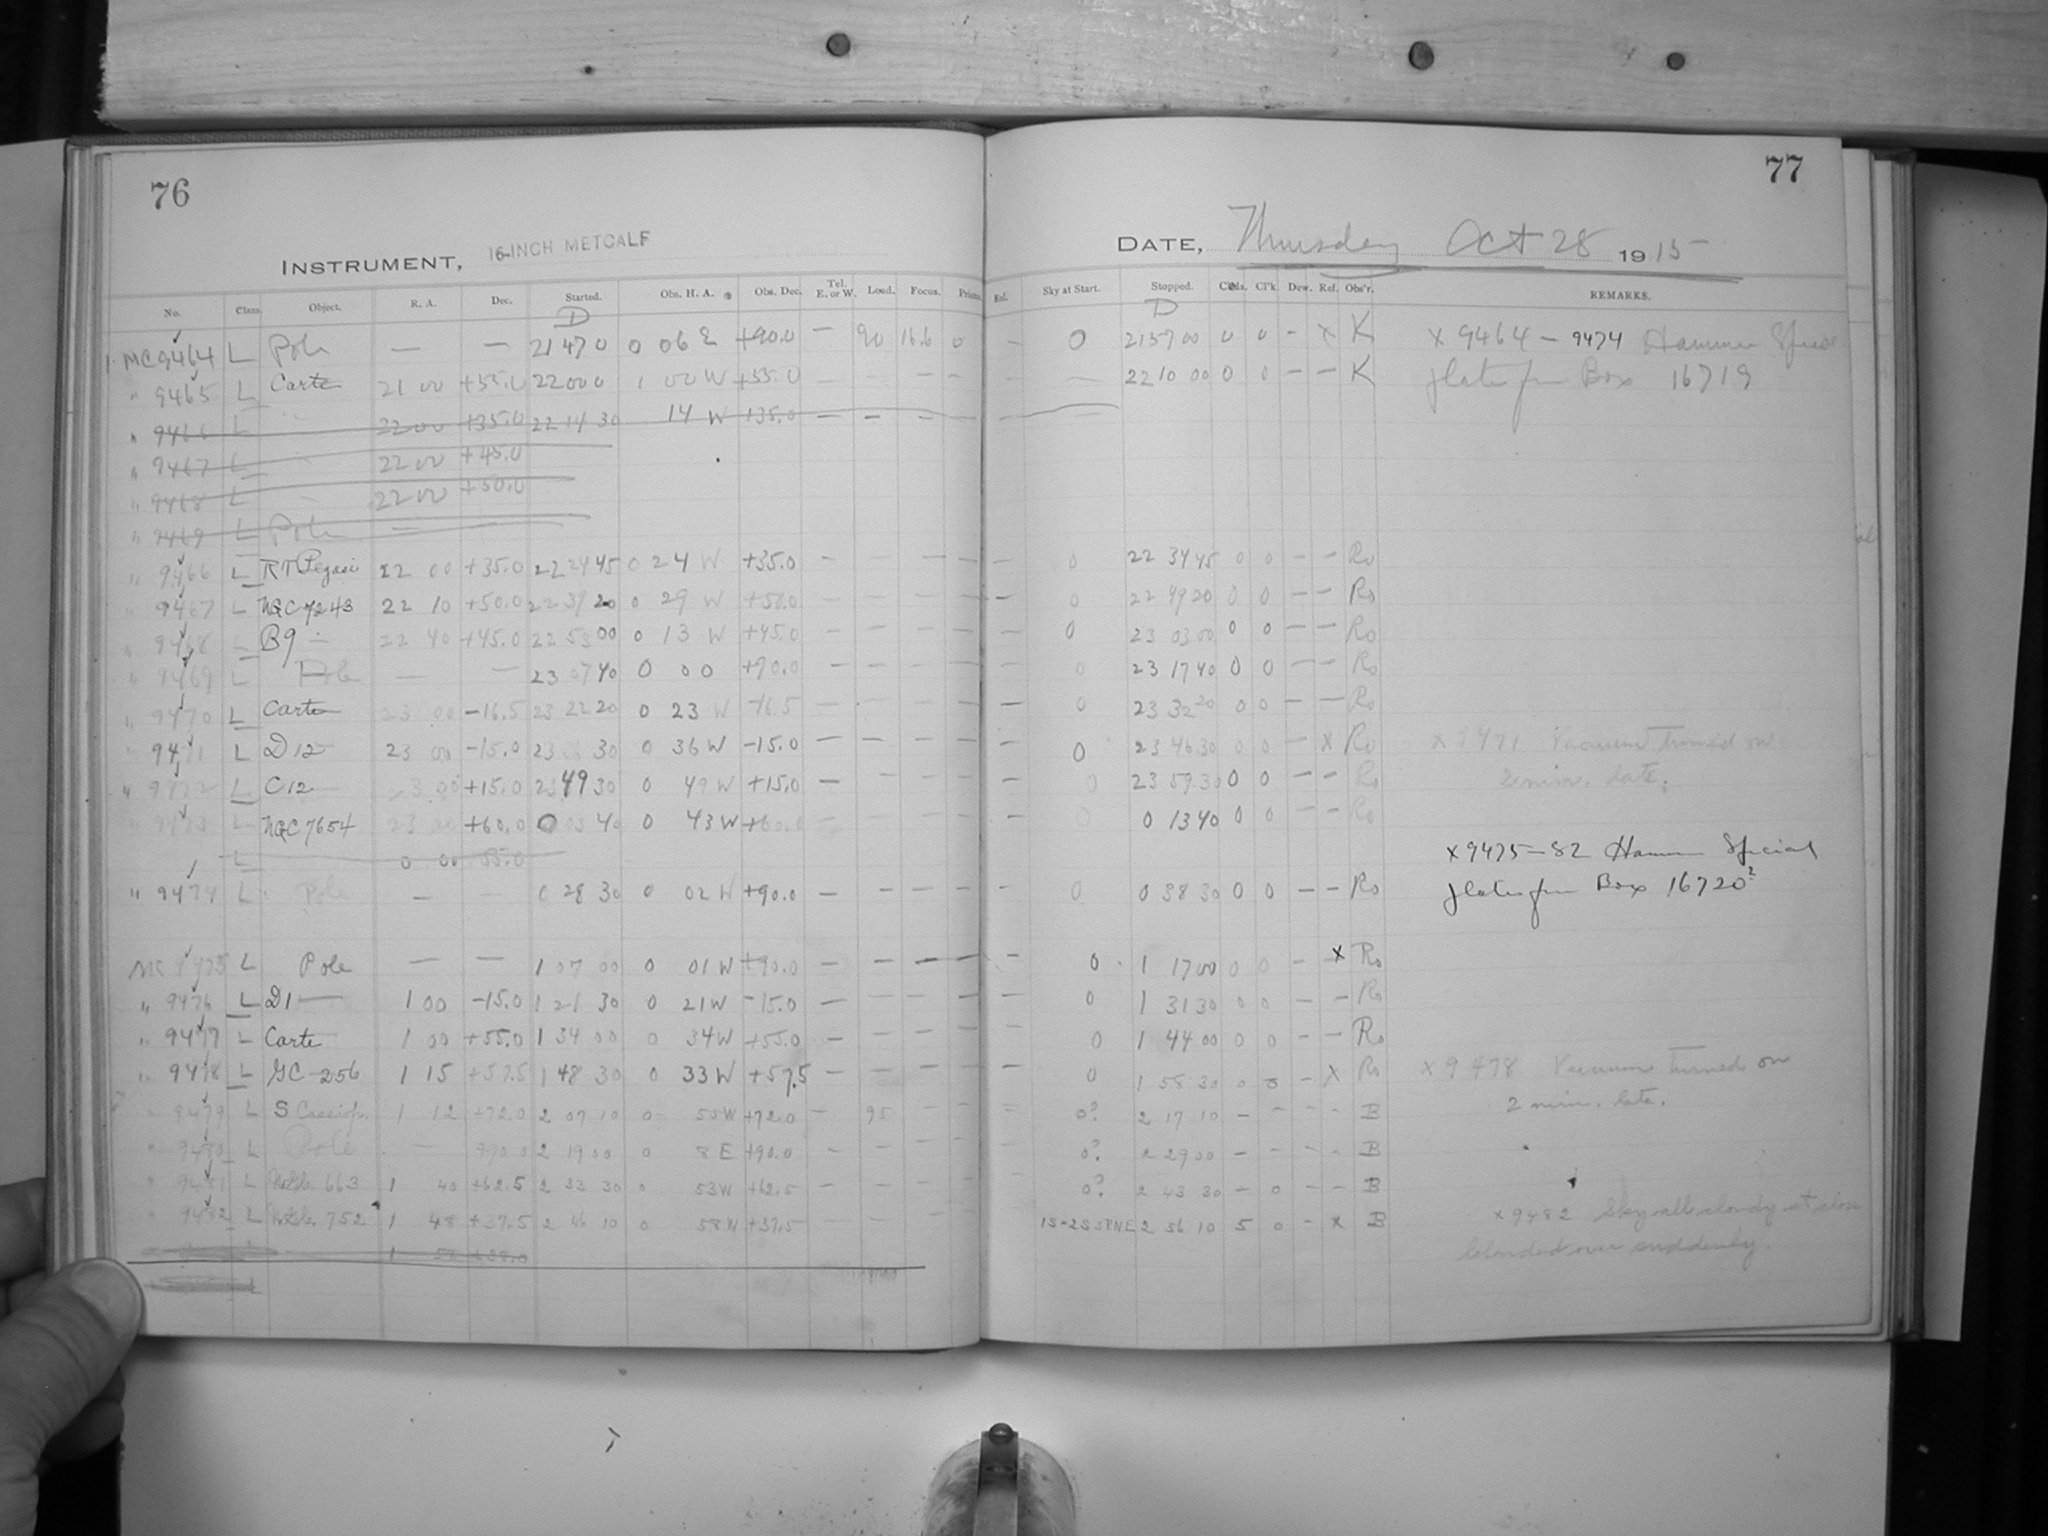 76
INSTRUMENT, 16-INCH METCALF
No. Class. Object. R. A. Dec. Started. Obs. H. A. Obs. Dec. Tel. E. or W. Load. Focus. Prism.
D
1 MC 9464 L Pole — — 21 47 0 0 06 E +90.0 — 90 16.6 0
" 9465 L Carte 21 00 +55.0 22 00 0 1 00 W +55.0 — — — —
" 9466 L " 22 00 +35.0 22 14 30 14 W +35.0 — — — —
" 9467 L " 22 00 +45.0
" 9468 L 22 00 +50.0
" 9469 L Pole —
" 9466 L RT Pegasi 22 00 +35.0 22 24 45 0 24 W +35.0 — — — —
" 9467 L NGC 7243 22 10 +50.0 22 39 20 0 29 W +50.0 — — — —
" 9468 L B9 — 22 40 +45.0 22 53 00 0 13 W +45.0 — — — —
" 9469 L Pole — — 23 07 40 0 00 +90.0 — — — —
" 9470 L Carte 23 00 -16.5 23 22 20 0 23 W -16.5 — — — —
" 9471 L D12 23 00 -15.0 23 30 0 36 W -15.0 — — — —
" 9472 L C12 23 00 +15.0 23 49 30 0 49 W +15.0 — — — —
" 9473 L NGC 7654 23 20 +60.0 0 03 40 0 43 W +60.0 — — — —
L 0 00 55.0
" 9474 L Pole — — 0 28 30 0 02 W +90.0 — — — —
MC 9475 L Pole — — 1 07 00 0 01 W +90.0 — — — —
" 9476 L D1 — 1 00 -15.0 1 21 30 0 21 W -15.0 — — — —
" 9477 L Carte 1 00 +55.0 1 34 00 0 34 W +55.0 — — — —
" 9478 L GC-256 1 15 +57.5 1 48 30 0 33 W +57.5 — — — —
" 9479 L S Cassiop. 1 12 +72.0 2 07 10 0 55 W +72.0 — 95 — —
" 9480 L Pole — +90.0 2 19 00 0 8 E +90.0 — — — —
" 9481 L 663 1 40 +62.5 2 33 30 0 53 W +62.5 — — — —
" 9482 L 752 1 48 +37.5 2 46 10 0 58 W +37.5 — — —
1
77
DATE, Thursday Oct 28 1915
Sky at Start. Stopped. Cl'k Dew. Ref. Obs'r. REMARKS.
D
— 0 21 57 00 0 0 — x K x 9464 – 9474 Hammer Special
— 22 10 00 0 0 — — K plates from Box 16719
— 0 22 34 45 0 0 — — Ro
— 0 22 49 20 0 0 — — Ro
— 0 23 03 00 0 0 — — Ro
— 0 23 17 40 0 0 — — Ro
— 0 23 32 20 0 0 — — Ro
— 0 23 46 30 0 0 — x Ro x 9471 Vacuum turned on
— 0 23 59 30 0 0 — — Ro 2 min. late.
— 0 0 13 40 0 0 — — Ro
x 9475–82 Hammer Special
— 0 0 38 30 0 0 — — Ro plates from Box 16720?
— 0 1 17 00 0 0 — x Ro
— 0 1 31 30 0 0 — — Ro
— 0 1 44 00 0 0 — — Ro
— 0 1 58 30 0 0 — x Ro x 9478 Vacuum turned on
— 0? 2 17 10 — — — — B 2 min. late.
— 0? 2 29 00 — — — — B
— 0? 2 43 30 — 0 — — B
2 56 10 5 0 — x B x 9482 Sky all cloudy at close
Clouded over suddenly.